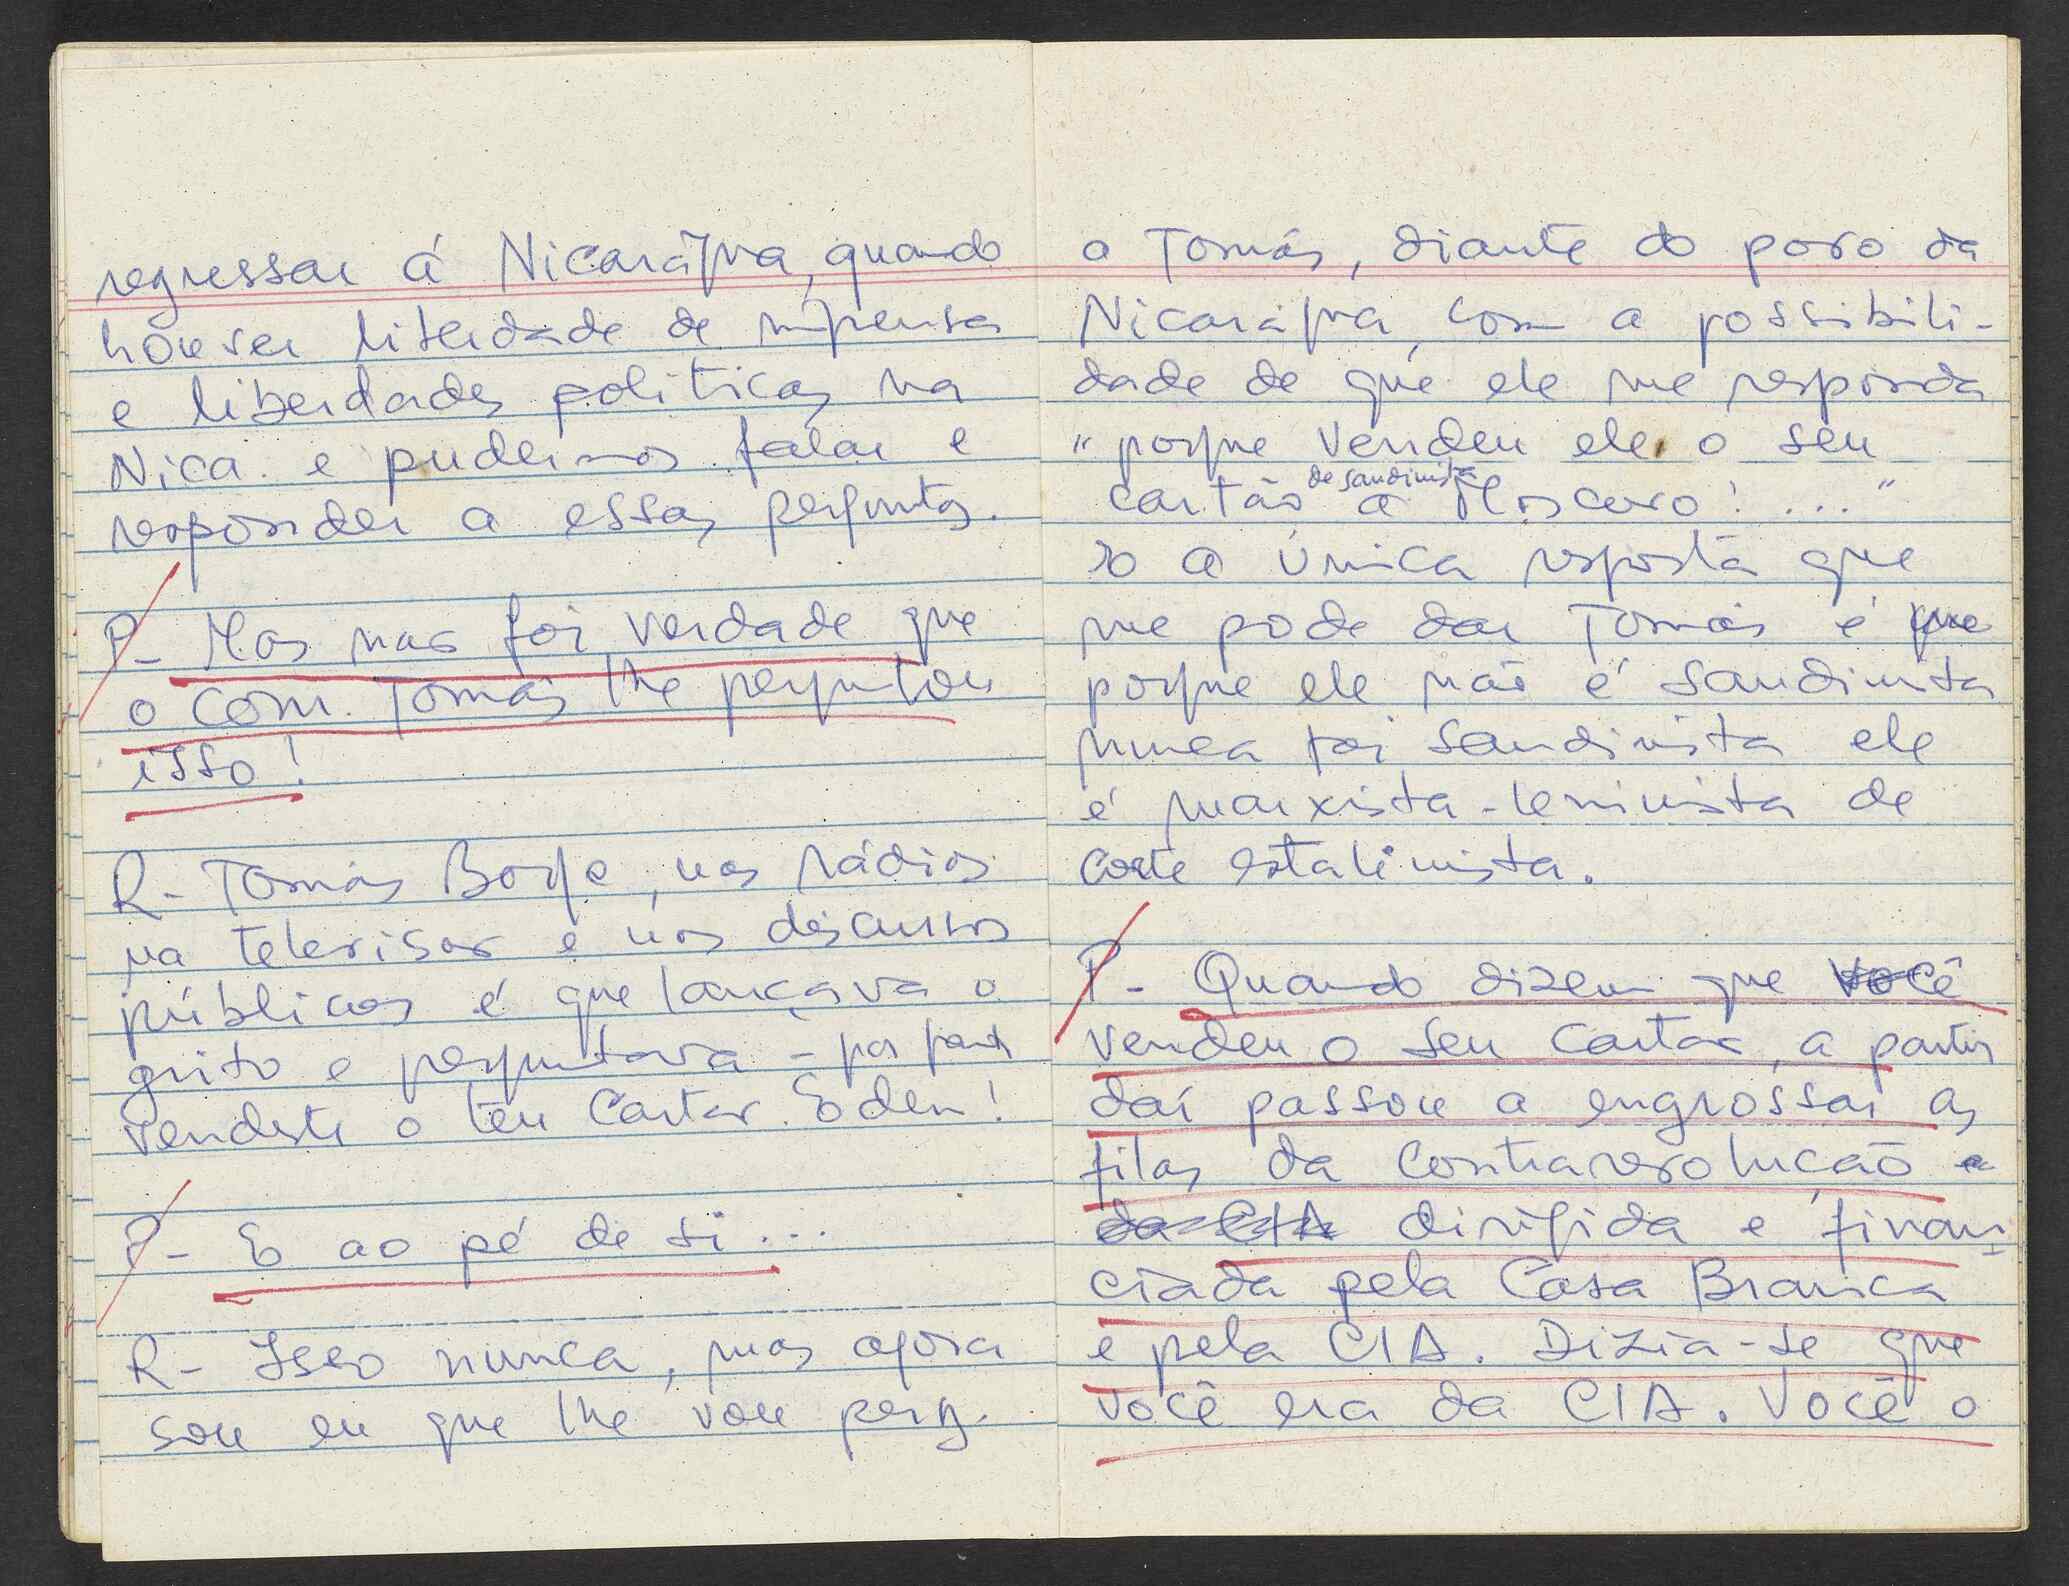 regressar á Nicarágua, quando
houver liberdade de imprensa
e liberdades politicas na
Nica. e pudermos falar e
responder a essas perguntas.
P- Mas nao foi verdade que
o com. Tomás lhe perguntou
isso!
R- Tomás Borge, nas rádios
na televisao e nos discursos
públicos é que lançava o
grito e perguntava -
vendeste o teu Cartao. Eden!
P- E ao pé de si...
R- Isso nunca, mas agora
sou eu que lhe vou perg.
o Tomás, diante do povo da
Nicarágua, com a possibili-
dade de que ele me responda
" porque vendeu ele o seu
cartão de sandinista a Moscovo! ... "
E a única resposta que
me pode dar Tomás é que
porque ele não é sandinista
nunca foi sandinista ele
é marxista-leninista de
corte estalinista.
P- Quando dizem que você
vendeu o seu Cartao, a partir
daí passou a engrossar as
filas da Contrarevolução e
da CIA dirigida e finan-
ciada pela Casa Branca
e pela CIA. Dizia-se que
você era da CIA. Você o